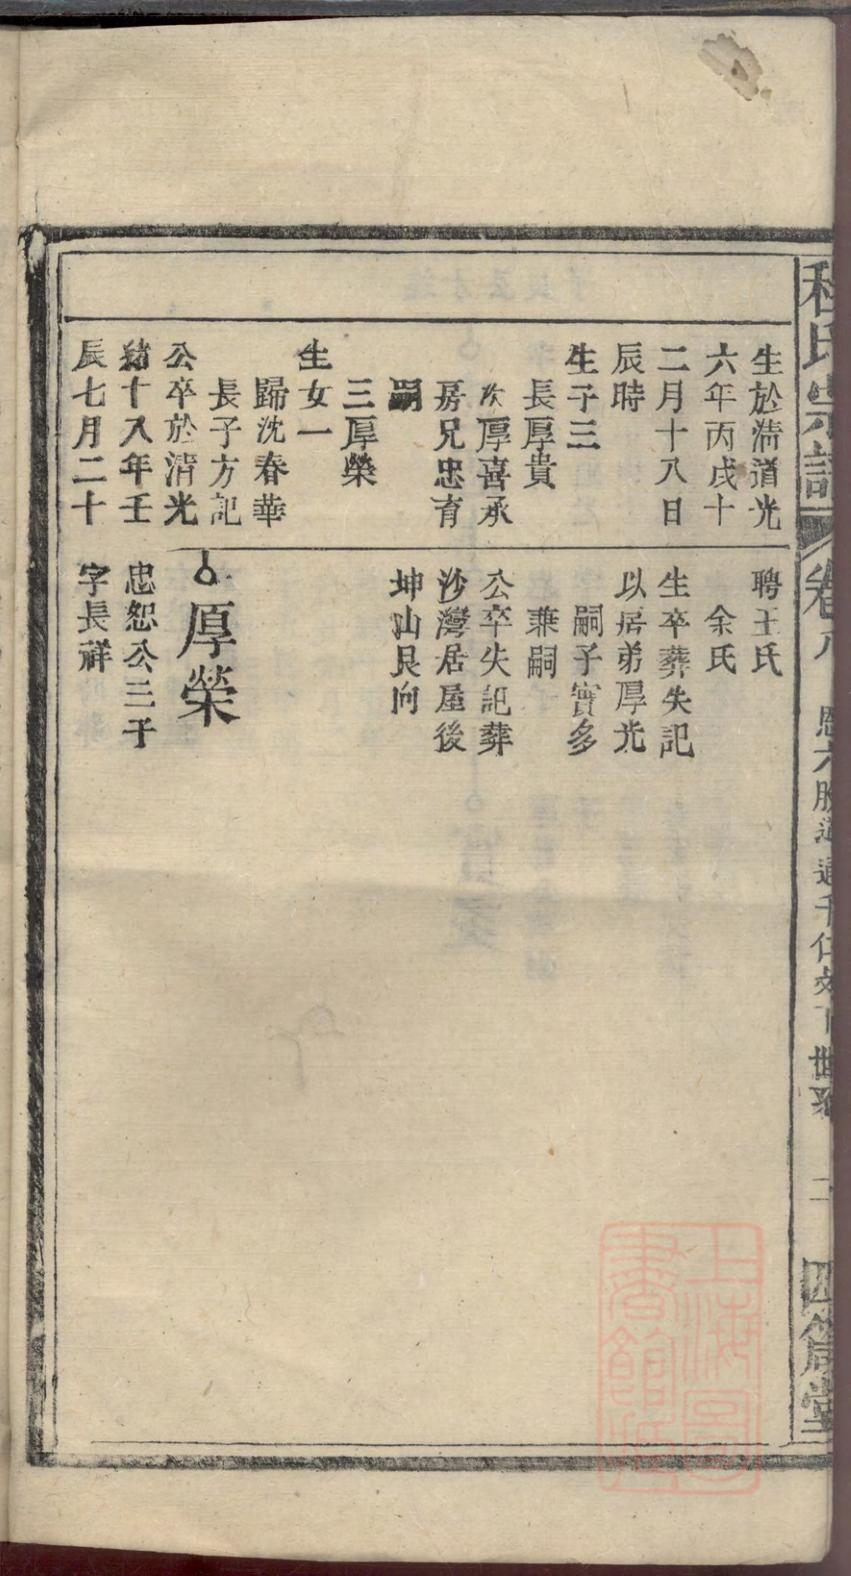 生於淸道光
六年丙戌十
二月十八日
辰時
生子三
長厚貴
次厚喜承
房兄忠育
嗣
三厚榮
生女一
歸沈春華
長子方記
公卒於清光
緒十八年壬
辰七月二十
聘王氏
余氏
生卒葬失記
以居弟厚光
嗣子實多
兼嗣
公卒失記葬
沙灣居屋後
坤山艮向
厚榮
忠恕公三子
字長祥
氏宗譜
卷八
二
上海圖
書館藏